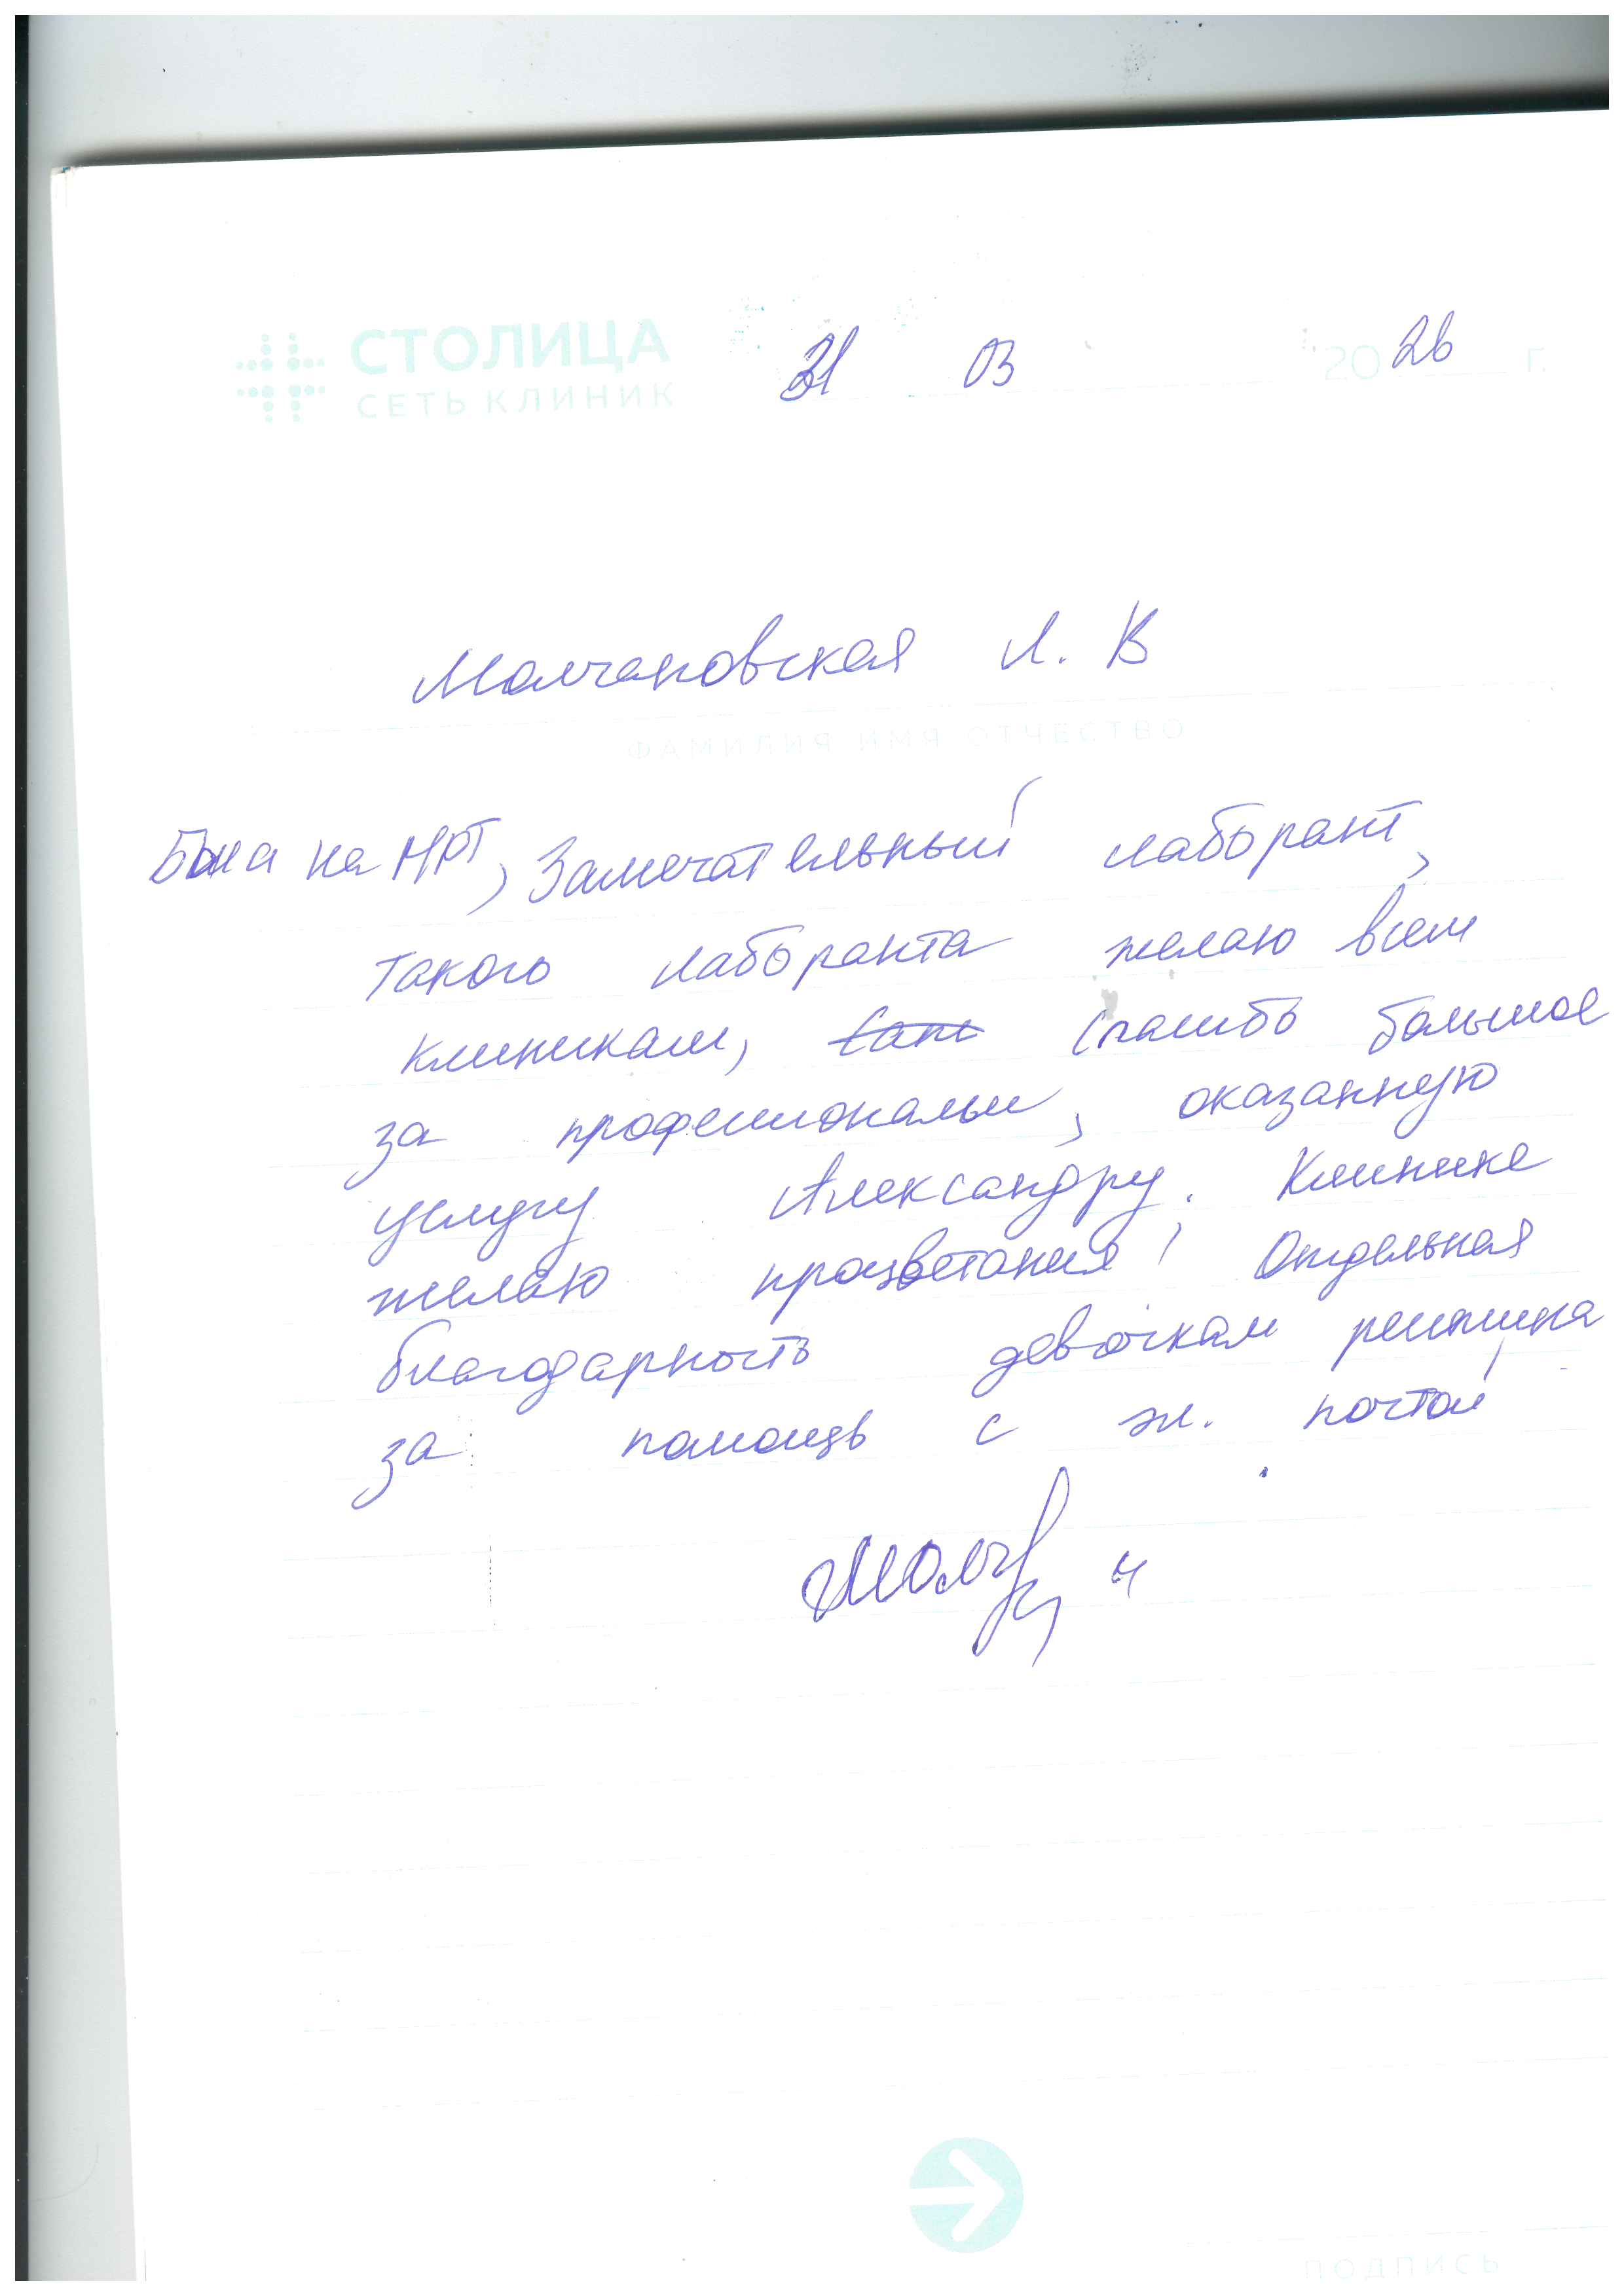 СТОЛИЦА
СЕТЬ КЛИНИК
31 03 2026 г.
Молчановская Л. В
ФАМИЛИЯ ИМЯ ОТЧЕСТВО
Была на МРТ, Замечательный лаборант,
такого лаборанта желаю всем
клиникам, спасибо большое
за професионализм, оказанную
услугу Александру. Клинике
желаю процветания! Отдельная
благодарность девочкам
за помощь с эл. почтой.
ПОДПИСЬ